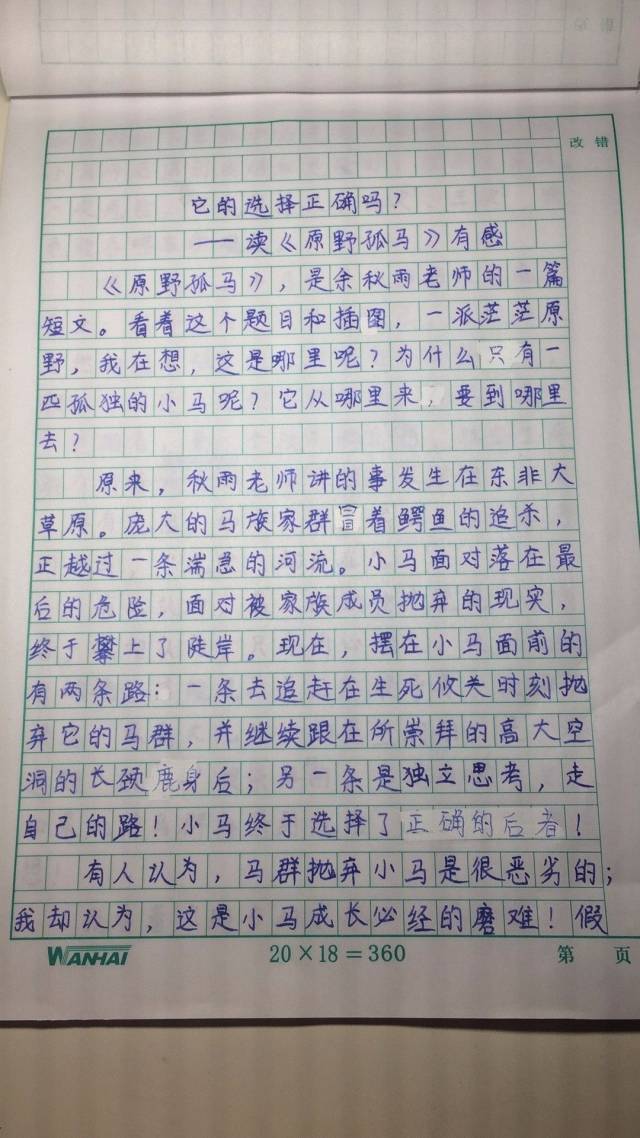 改错
它的选择正确吗?
——读《原野孤马》有感
《原野孤马》,是余秋雨老师的一篇
短文。看着这个题目和插图,一派茫茫原
野,我在想,这是哪里呢?为什么只有一
匹孤独的小马呢?它从哪里来,要到哪里
去?
原来,秋雨老师讲的事发生在东非大
草原。庞大的马族家群冒着鳄鱼的追杀,
正越过一条湍急的河流。小马面对落在最
后的危险,面对被家族成员抛弃的现实,
终于攀上了陡岸。现在,摆在小马面前的
有两条路:一条去追赶在生死攸关时刻抛
弃它的马群,并继续跟在所崇拜的高大空
洞的长颈鹿身后;另一条是独立思考,走
自己的路!小马终于选择了正确的后者!
有人认为,马群抛弃小马是很恶劣的;
我却认为,这是小马成长必经的磨难!假
WANHAI 20×18=360 第 页